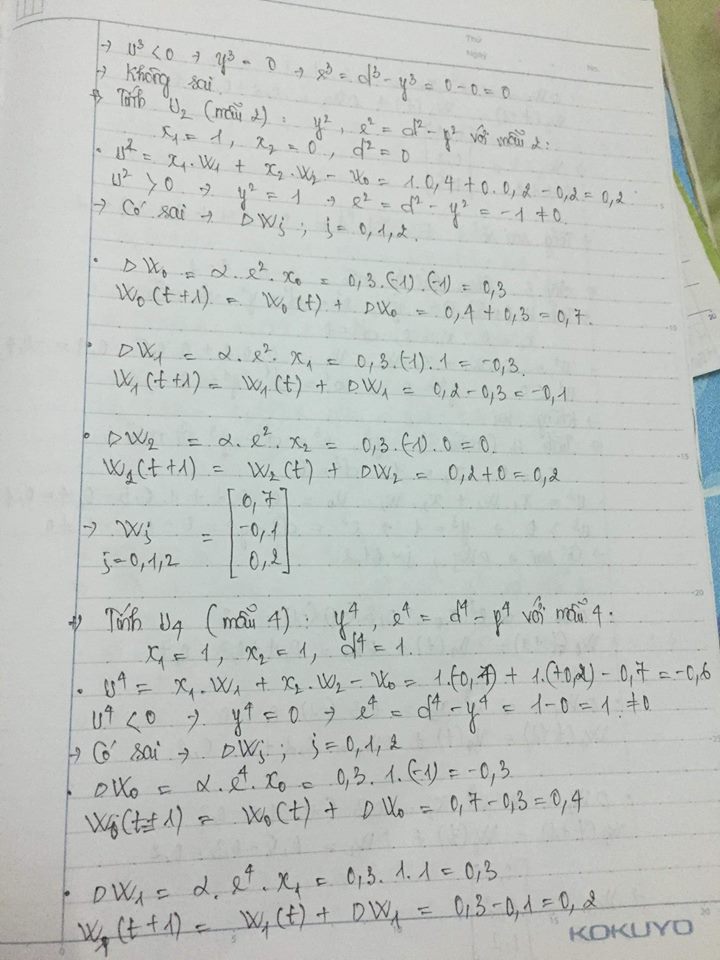 Thứ
Ngày
No.
→ u³ < 0 → y³ = 0 → e³ = d³ - y³ = 0 - 0 = 0
→ Không sai.
Tính U₂ (mẫu 2) : y², e² = d² - y² với mẫu 2:
x₁ = 1, x₂ = 0, d² = 0
• u² = x₁.W₁ + x₂.W₂ - W₀ = 1.0,4 + 0.0,2 - 0,2 = 0,2
u² > 0 → y² = 1 → e² = d² - y² = -1 ≠ 0.
→ Có sai → DWj ; j = 0,1,2.
• DW₀ = α.e².x₀ = 0,3.(-1).(-1) = 0,3
W₀(t+1) = W₀(t) + DW₀ = 0,4 + 0,3 = 0,7.
• DW₁ = α.e².x₁ = 0,3.(-1).1 = -0,3.
W₁(t+1) = W₁(t) + DW₁ = 0,2 - 0,3 = -0,1
• DW₂ = α.e².x₂ = 0,3.(-1).0 = 0.
W₂(t+1) = W₂(t) + DW₂ = 0,2 + 0 = 0,2
→ Wj = [0,7
-0,1
j=0,1,2 0,2]
Tính U₄ (mẫu 4) : y⁴, e⁴ = d⁴ - y⁴ với mẫu 4:
x₁ = 1, x₂ = 1, d⁴ = 1.
• u⁴ = x₁.W₁ + x₂.W₂ - W₀ = 1.(-0,1) + 1.(+0,2) - 0,7 = -0,6
u⁴ < 0 → y⁴ = 0 → e⁴ = d⁴ - y⁴ = 1 - 0 = 1 ≠ 0
→ Có sai → DWj ; j = 0,1,2
• DW₀ = α.e⁴.x₀ = 0,3.1.(-1) = -0,3
W₀(t+1) = W₀(t) + DW₀ = 0,7 - 0,3 = 0,4
• DW₁ = α.e⁴.x₁ = 0,3.1.1 = 0,3
W₁(t+1) = W₁(t) + DW₁ = 0,3 - 0,1 = 0,2
KOKUYO